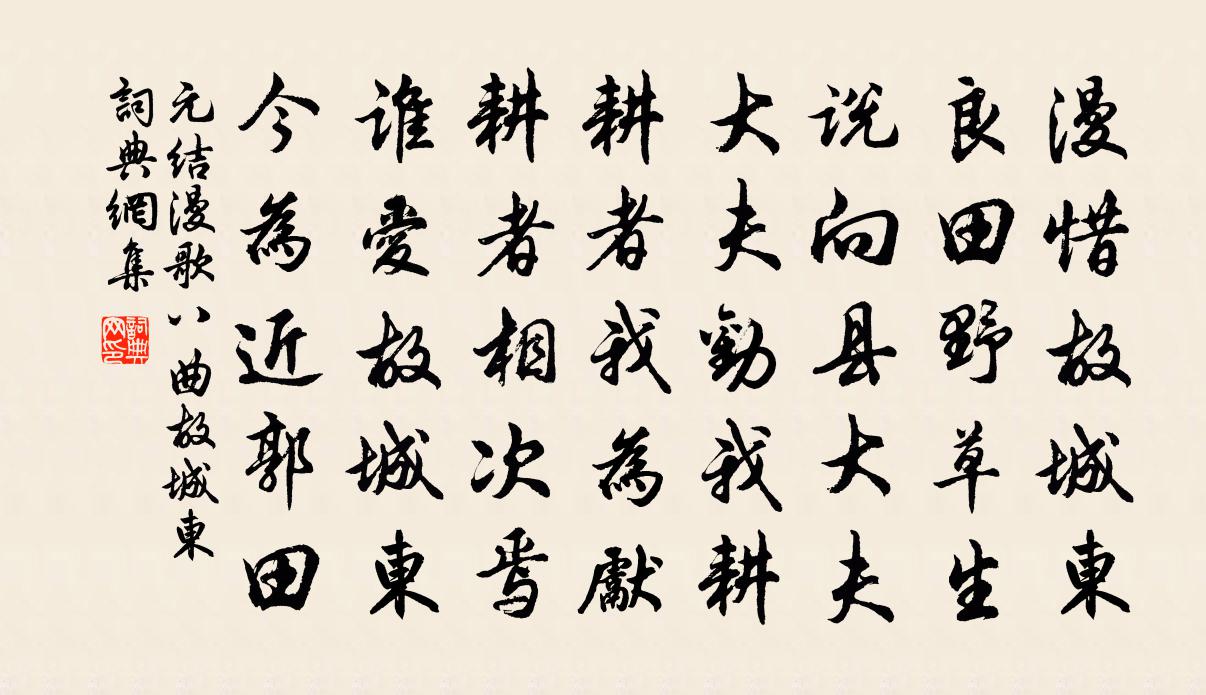 漫惜故城東
良田野草生
说向县大夫
大夫勸我耕
耕者我為獻
耕者相次焉
誰愛故城東
今為近郭田
元结漫歌八曲故城東
詞典網集
詞典网印